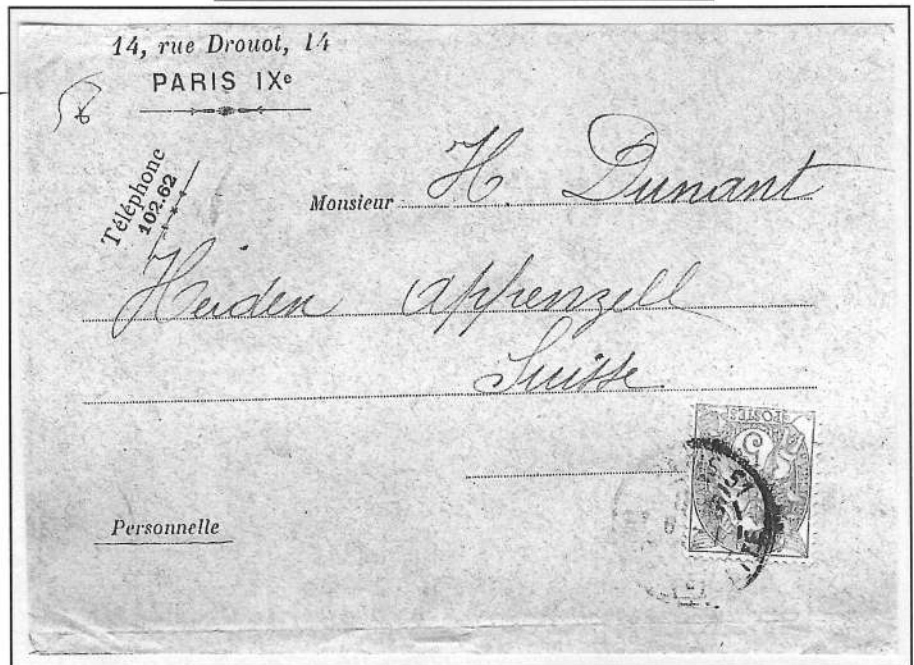 14, rue Drouot, 14
PARIS IXe
Téléphone
102.62
Monsieur H. Dunant
Heiden Appenzell
Suisse
POSTES
Personnelle